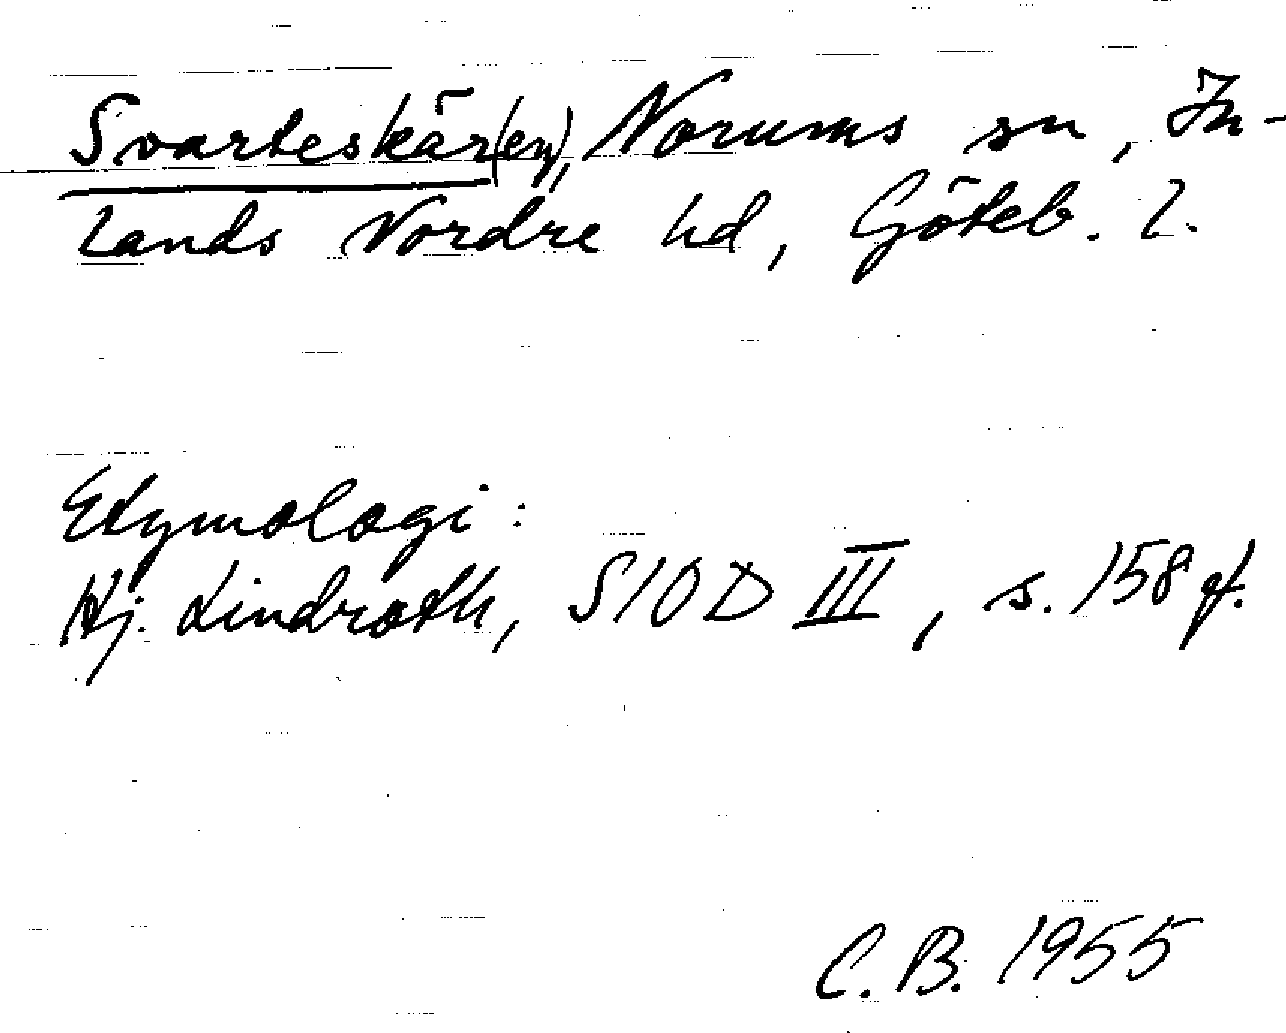 Svarteskär(en), Norums sn, In-
lands Nordre hd, Göteb. l.
Etymologi:
Hj. Lindroth, SIOD III, s. 158 f.
C.B. 1955